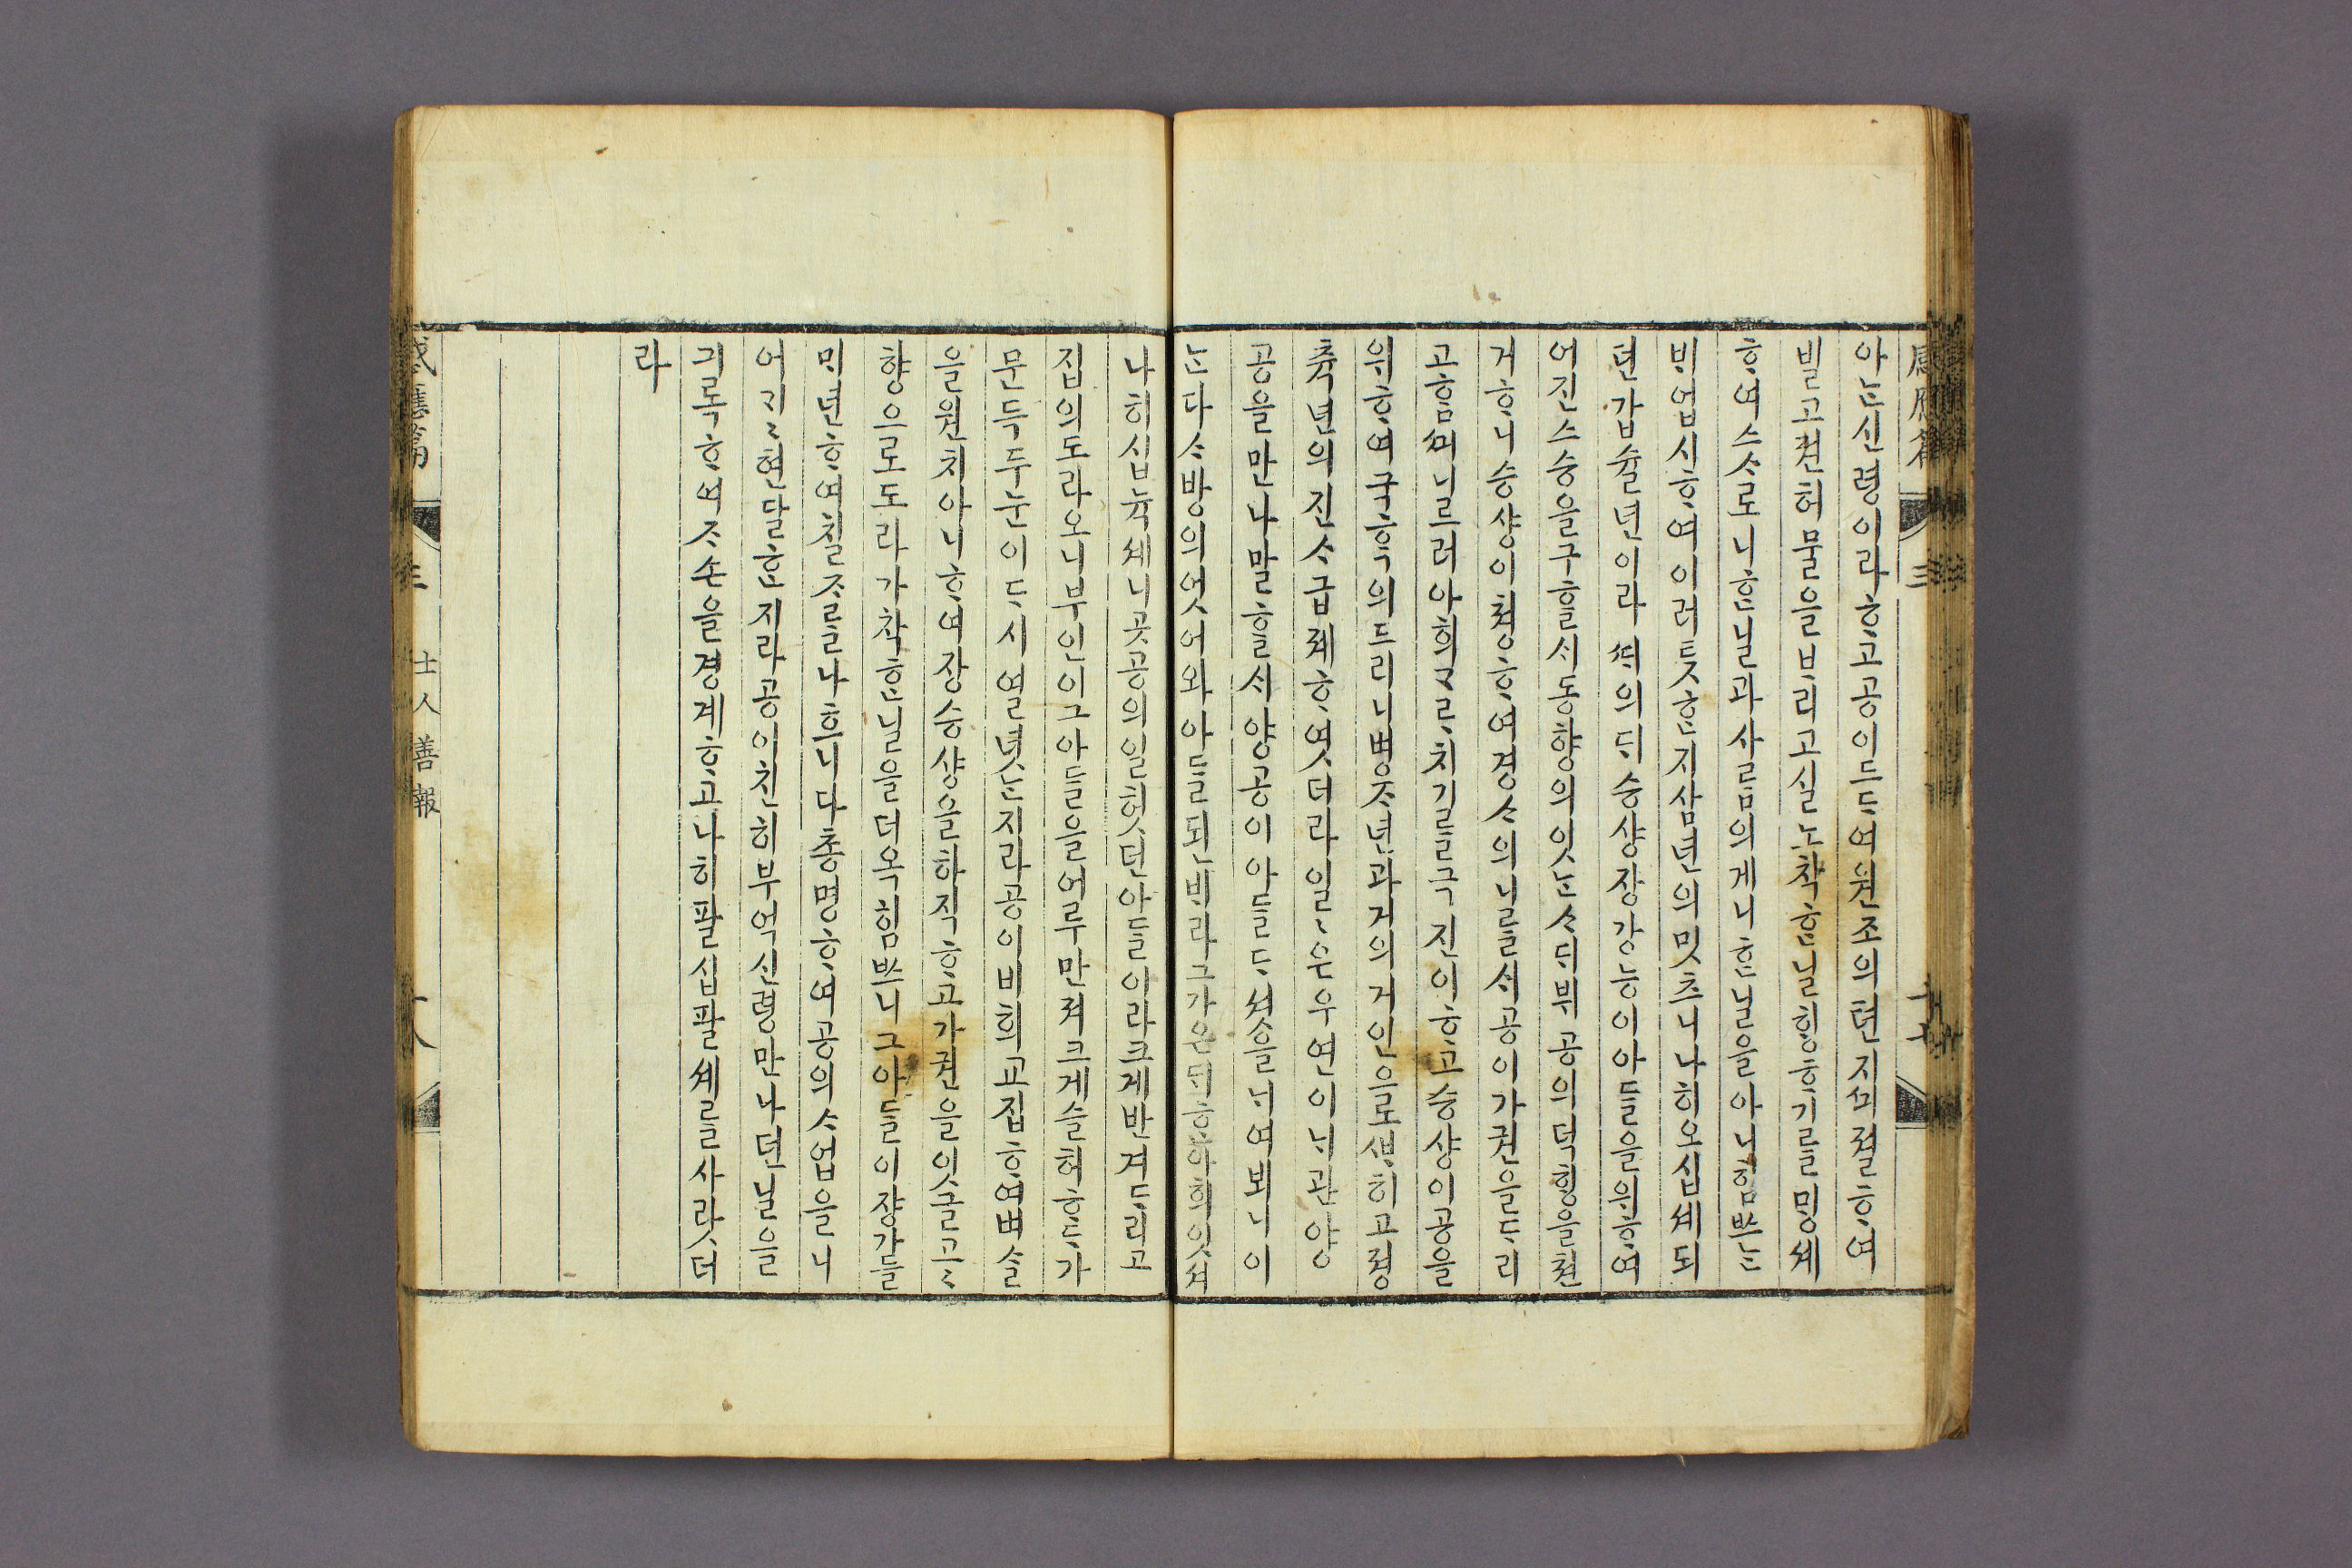 아ᄂᆞᆫ신령이라ᄒᆞ고공이드ᄃᆡ여쳔조의현지ᄇᆡ졀ᄒᆞ여
빌고젼허물을ᄇᆞ리고실노착ᄒᆞᆫ닐ᄒᆡᆼᄒᆞ기ᄅᆞᆯᄆᆡᆼ셰
ᄒᆞ여스ᄉᆞ로니ᄒᆞᆫ닐과사ᄅᆞᆷ의게니ᄒᆞᆫ닐을아니힘ᄡᅳᄂᆞᆫ
ᄇᆡ업시ᄒᆞ여이러ᄐᆞᆺᄒᆞᆫ지삼년의밋ᄎᆞ니나히오십셰되
년갑슐년이라ᄯᅢ의ᄃᆡ승샹장강능이아들을위ᄒᆞ여
어진스승을구ᄒᆞᆯᄉᆡ동향의잇ᄂᆞᆫᄉᆞᄃᆡ뷔공의덕ᄒᆡᆼ을쳔
거ᄒᆞ니승샹이쳥ᄒᆞ여경ᄉᆞ의니를ᄉᆡ공이가권을ᄃᆞ리
고ᄒᆞᆷᄭᅴ니르러아ᄒᆡᄀᆞᄅᆞ치기ᄅᆞᆯ극진이ᄒᆞ고승샹이공을
위ᄒᆞ여국ᄒᆞᆨ의드리니병ᄌᆞ년과거의거인으로ᄲᅢ히고졍
츅년의진ᄉᆞ급졔ᄒᆞ엿더라일일은우연이ᄂᆡ관야ᇰ
공을만나말ᄒᆞᆯᄉᆡ양공이아들다ᄉᆞᆺ슬ᄂᆡ여뵈니이
ᄂᆞᆫ다ᄉᆞ방의엇어와아들된ᄇᆡ라그가온ᄃᆡᄒᆞᆫ아ᄒᆡ잇셔
나히십뉵셰니곳공의일헛던아들이라크게반겨ᄃᆞ리고
집의도라오니부인이그아들을어루만져크게슬허ᄒᆞ다가
문득두눈이다시열녓ᄂᆞᆫ지라공이비희교집ᄒᆞ여벼슬
을원치아니ᄒᆞ여장승샹을하직ᄒᆞ고가권을잇글고〻
향으로도라가착ᄒᆞᆫ닐을더옥힘ᄡᅳ니그아들이쟝가들
ᄆᆡ년ᄒᆞ여칠ᄌᆞᄅᆞᆯ나흐니다총명ᄒᆞ여공의ᄉᆞ업을니
어지〻현달ᄒᆞᆫ지라공이친히부억신령만나던닐을
긔록ᄒᆞ여ᄌᆞ손을경계ᄒᆞ고나히팔십팔셰ᄅᆞᆯ사랏더
라
感應篇
三
士人善報
十八